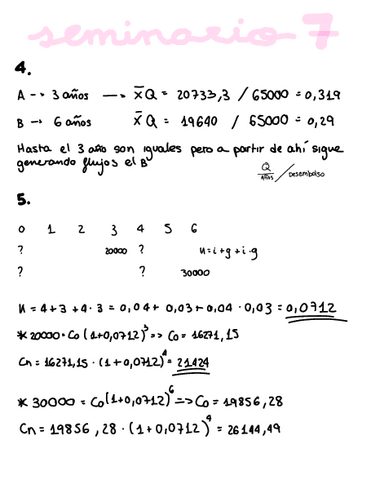 seminario 7
4.
A --> 3 años —> x̄ Q = 20733,3 / 65000 = 0,319
B -> 6 años x̄ Q = 19640 / 65000 = 0,29
Hasta el 3 año son iguales pero a partir de ahí sigue
generando flujos el B
Q/años / Desembolso
5.
0 1 2 3 4 5 6
? 20000 ? u=i+g+i·g
? ? 30000
u = 4+3+4·3 = 0,04+0,03+0,04·0,03 = 0,0712
* 20000 = Co (1+0,0712)³ => Co = 16271,15
Cn = 16271,15 · (1+0,0712)⁴ = 21424
* 30000 = Co (1+0,0712)⁶ -> Co = 19856,28
Cn = 19856,28 · (1+0,0712)⁴ = 26144,49